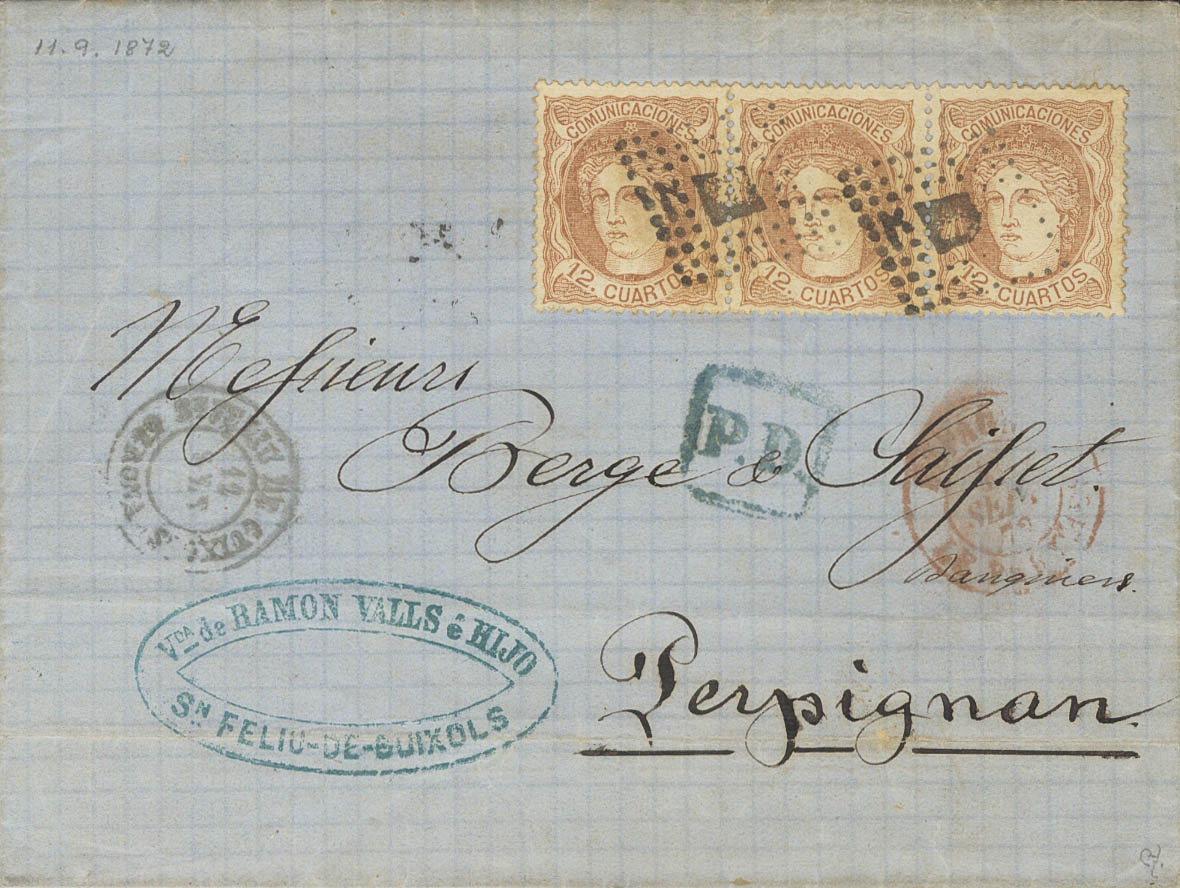 11.9.1872
COMUNICACIONES COMUNICACIONES COMUNICACIONES
12. CUARTOS 12. CUARTOS 12. CUARTOS
Messieurs
P.D
Berge & Saisset.
Banquiers.
SEPT
Perpignan
Vda de RAMON VALLS é HIJO
Sn FELIU-DE-GUIXOLS